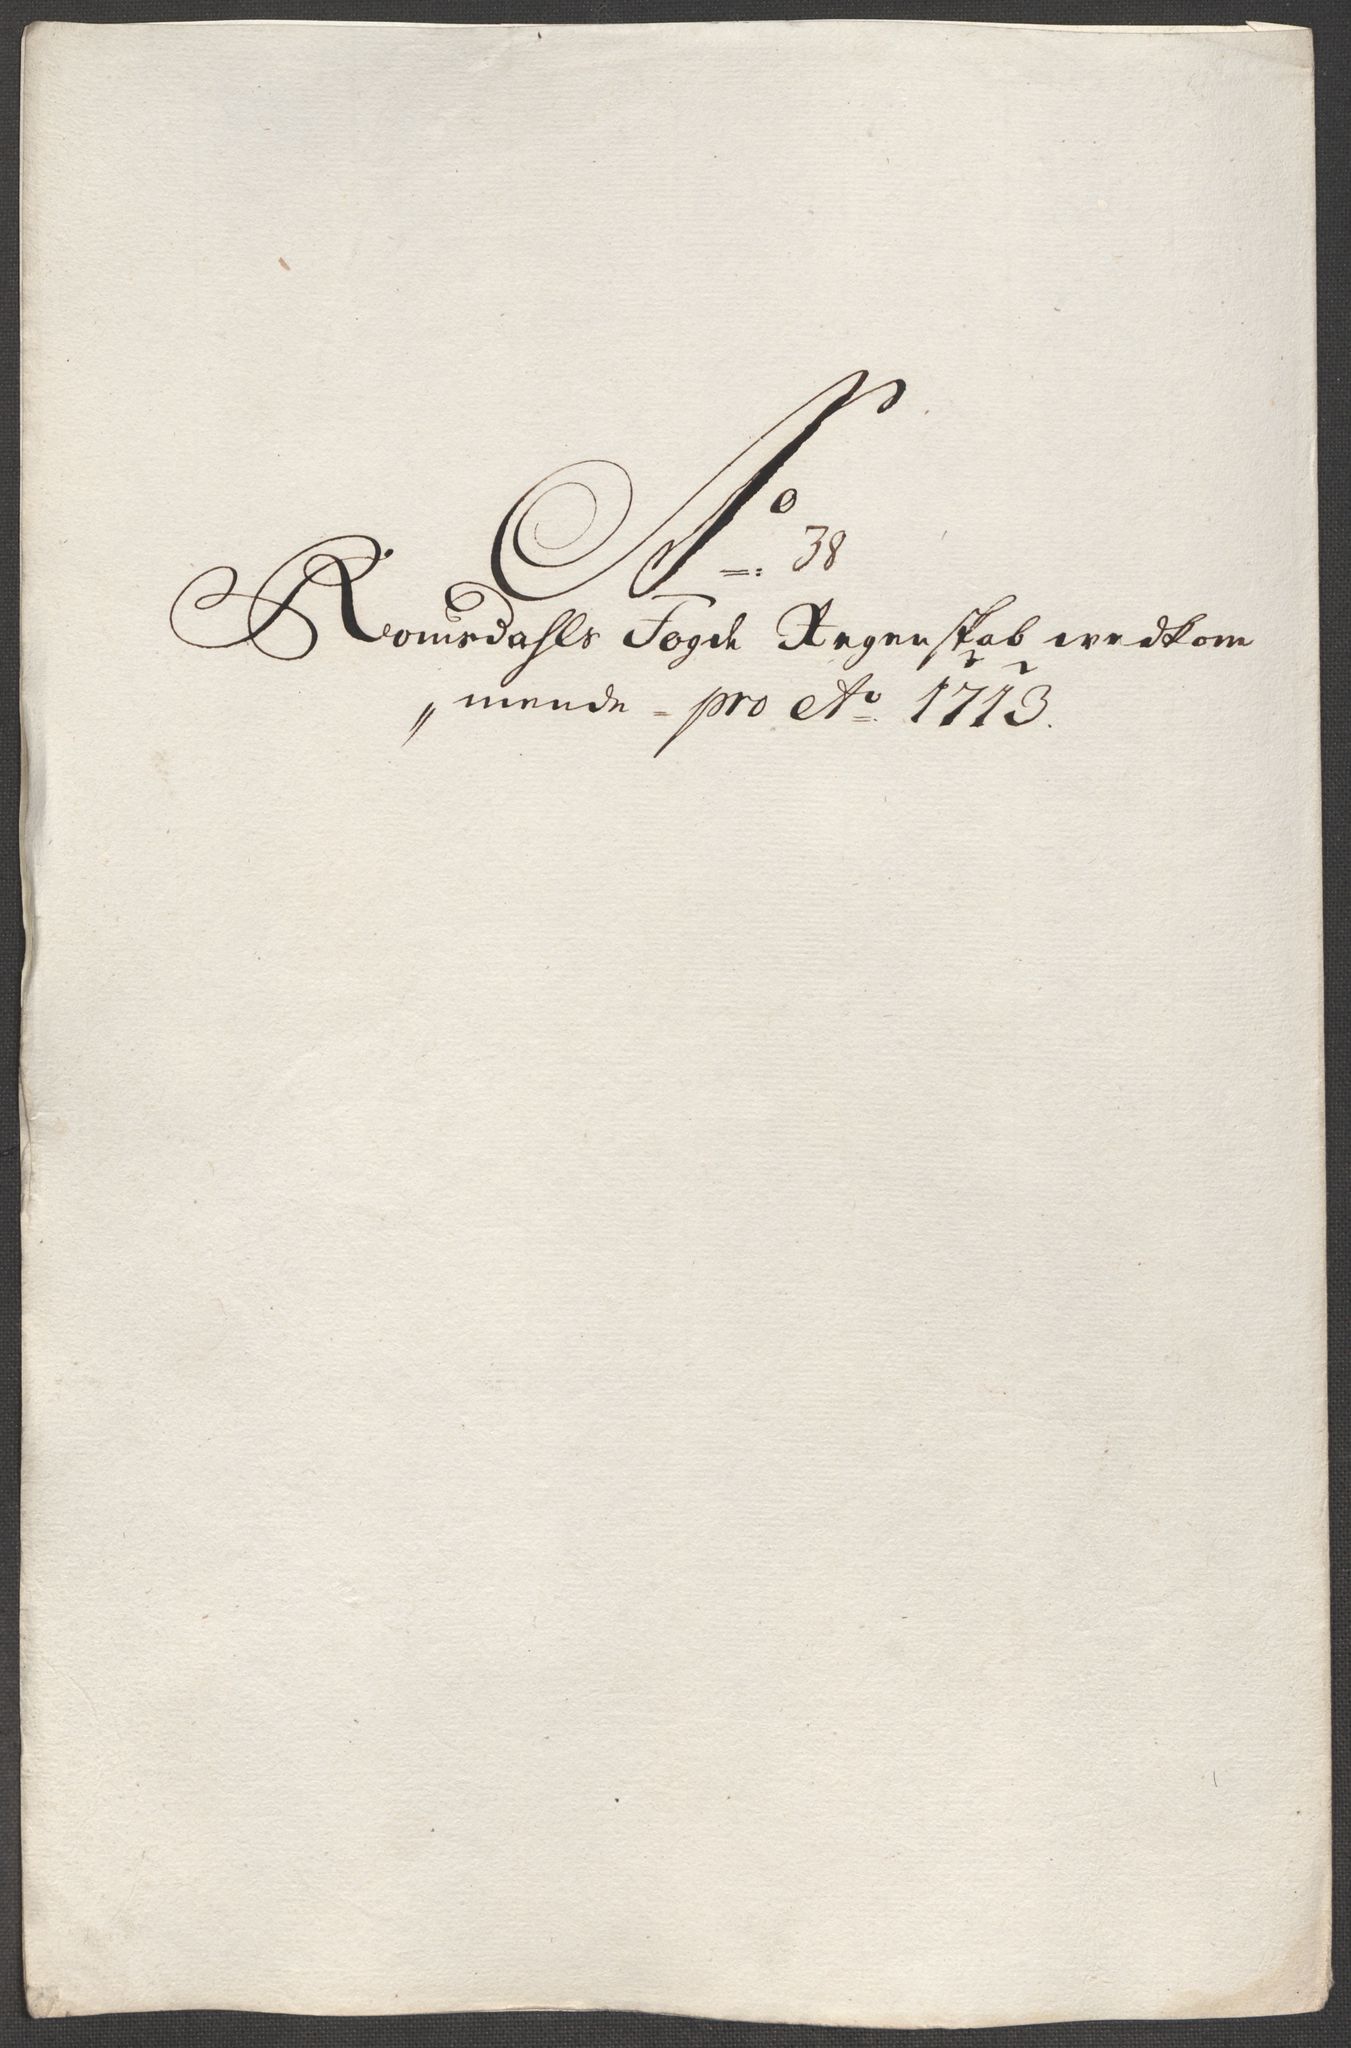 No 38
Romsdahls Fogde Regenskab wedkom
„mende - pro Ao 1713.